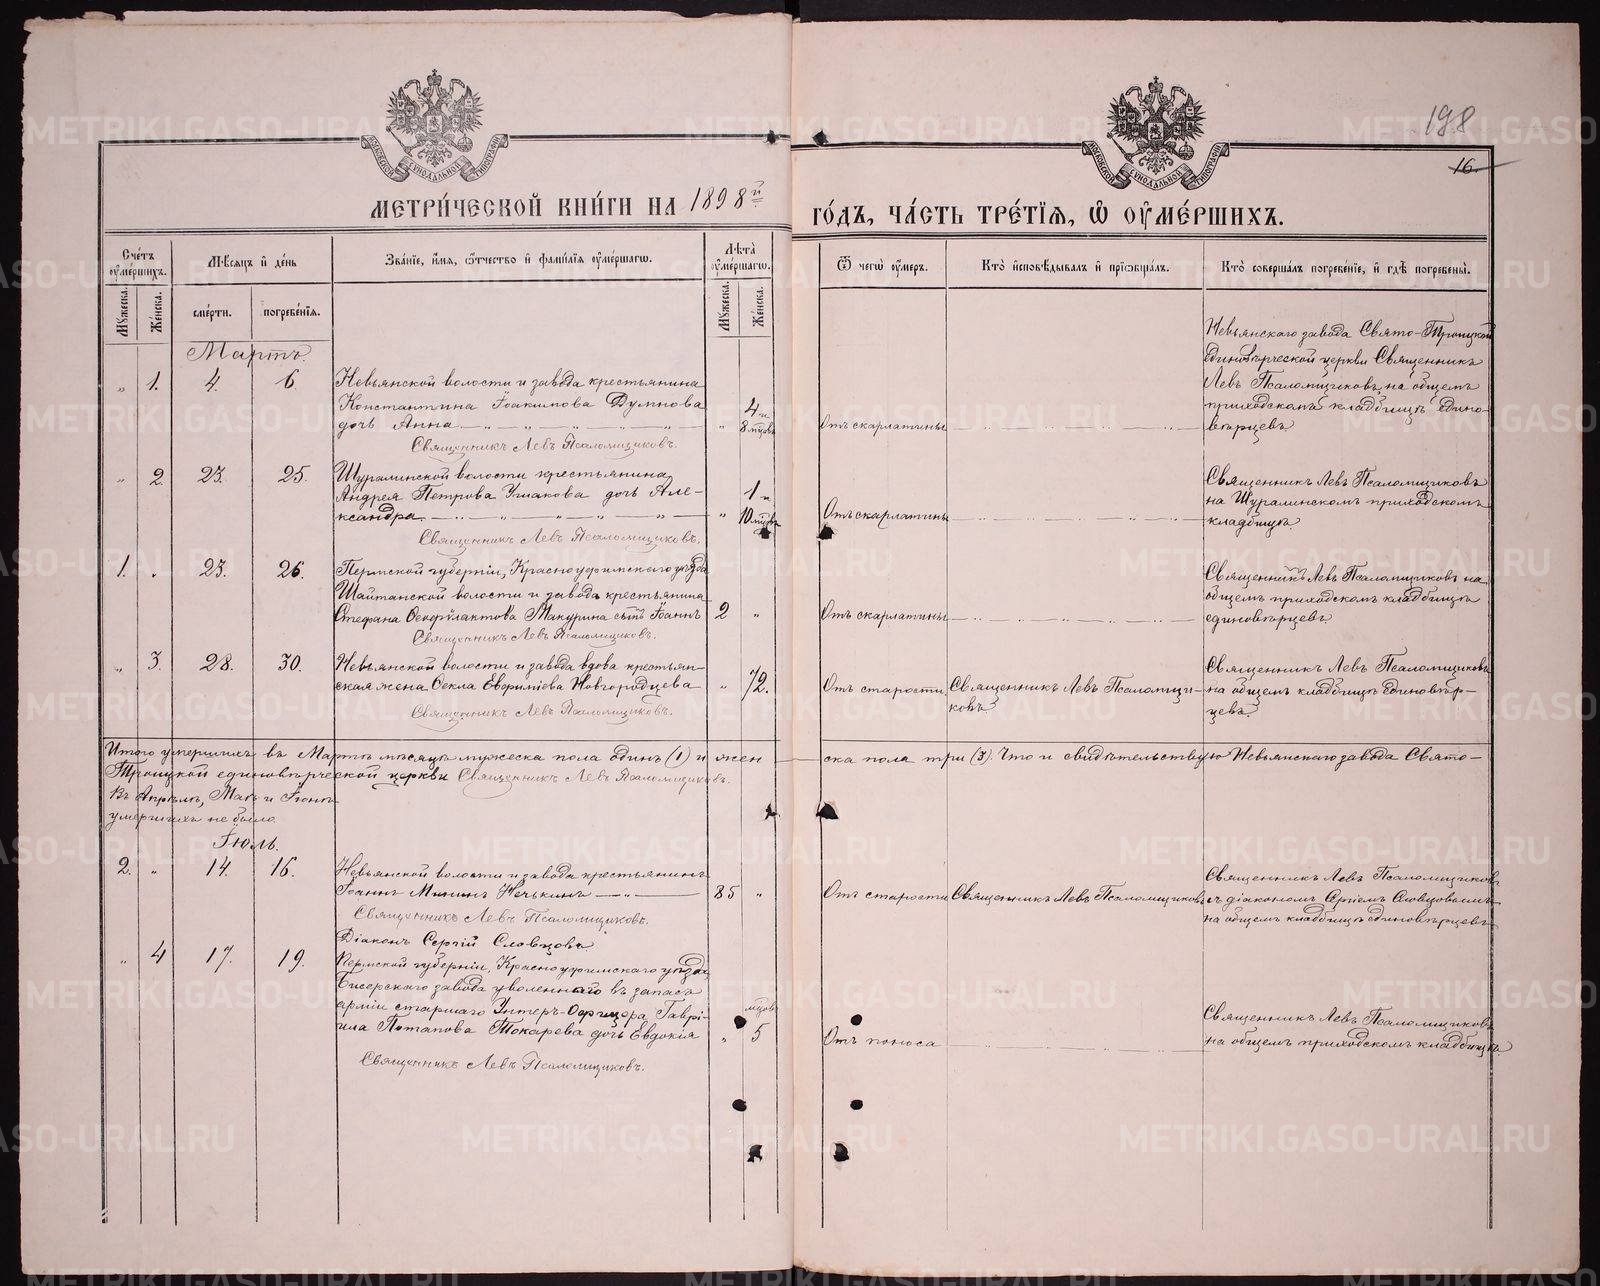 198
16.
МЕТРИ́ЧЕСКОЙ КНИ́ГИ НА 1898й ГО́ДЪ, ЧА́СТЬ ТРЕ́ТІѦ, Ѡ҆ ОУ҆МЕ́РШИХЪ.
Сче́тъ оу҆ме́ршихъ.
Мѣ́сѧцъ и҆ де́нь
Зва́нїе, и҆́мѧ, ѻ҆́тчество и҆ фами́лїѧ оу҆ме́ршагѡ.
Лѣта̀ оу҆ме́ршагѡ.
Ѿ чегѡ̀ оу҆́меръ.
Кто̀ и҆сповѣ́дывалъ и҆ прїѡбща́лъ.
Кто̀ соверша́лъ погребе́нїе, и҆ гдѣ̀ погребены̀.
Мꙋ́жеска.
Же́нска.
сме́рти.
погребе́нїѧ.
Мꙋ́жеска.
Же́нска.
Мартъ.
„ 1. 4. 6.
Невьянской волости и завода крестьянина
Константина Іоакимова Думнова
дочь Анна
Священникъ Левъ Псаломщиковъ.
„ 4 и
8 мцовъ
Отъ скарлатины
Невьянскаго завода Свято-Троицкой
единовѣрческой церкви Священникъ
Левъ Псаломщиковъ, на общемъ
приходскомъ кладбищѣ едино-
вѣрцевъ.
„ 2. 23. 25.
Шуралинской волости крестьянина
Андрея Петрова Ушакова дочь Але-
ксандра
Священникъ Левъ Псаломщиковъ.
„ 1 и
10 мцовъ
Отъ скарлатины
Священникъ Левъ Псаломщиковъ
на Шуралинскомъ приходскомъ
кладбищѣ.
1. „ 23. 26.
Пермской губерніи, Красноуфимскаго уѣзда
Шайтанской волости и завода крестьянина
Стефана Ѳеофилактова Макурина сынъ Іоаннъ
Священникъ Левъ Псаломщиковъ.
2 „
Отъ скарлатины
Священникъ Левъ Псаломщиковъ на
общемъ приходскомъ кладбищѣ
единовѣрцевъ
„ 3. 28. 30.
Невьянской волости и завода вдова крестьян-
ская жена Ѳекла Евфиміева Новгородцева
Священникъ Левъ Псаломщиковъ.
„ 72.
Отъ старости
Священникъ Левъ Псаломщи-
ковъ
Священникъ Левъ Псаломщиковъ
на общемъ кладбищѣ единовѣр-
цевъ.
Итого умершихъ въ Мартѣ мѣсяцѣ мужеска пола одинъ (1) и жен
ска пола три (3). Что и свидѣтельствую Невьянскаго завода Свято-
Троицкой единовѣрческой церкви Священникъ Левъ Псаломщиковъ.
Въ Апрѣлѣ, Маѣ и Іюнѣ
умершихъ не было.
Іюль.
2. „ 14. 16.
Невьянской волости и завода крестьянинъ
Іоаннъ Мининъ Нечкинъ
Священникъ Левъ Псаломщиковъ.
Діаконъ Сергій Словцовъ
85 „
Отъ старости
Священникъ Левъ Псаломщиковъ
Священникъ Левъ Псаломщиковъ
съ діакономъ Сергіемъ Словцовымъ
на общемъ кладбищѣ единовѣрцевъ
„ 4 17. 19.
Пермской губерніи, Красноуфимскаго уѣзда
Бисерскаго завода уволеннаго въ запасъ
арміи старшаго Унтеръ-Офицера Гаврі-
ила Потапова Токарева дочь Евдокія
Священникъ Левъ Псаломщиковъ.
мцовъ
„ 5
Отъ поноса
Священникъ Левъ Псаломщиковъ
на общемъ приходскомъ кладбищѣ.